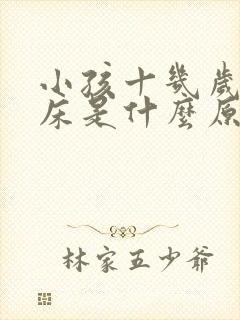 小孩十幾歲
床是什麼原
林家五少爺